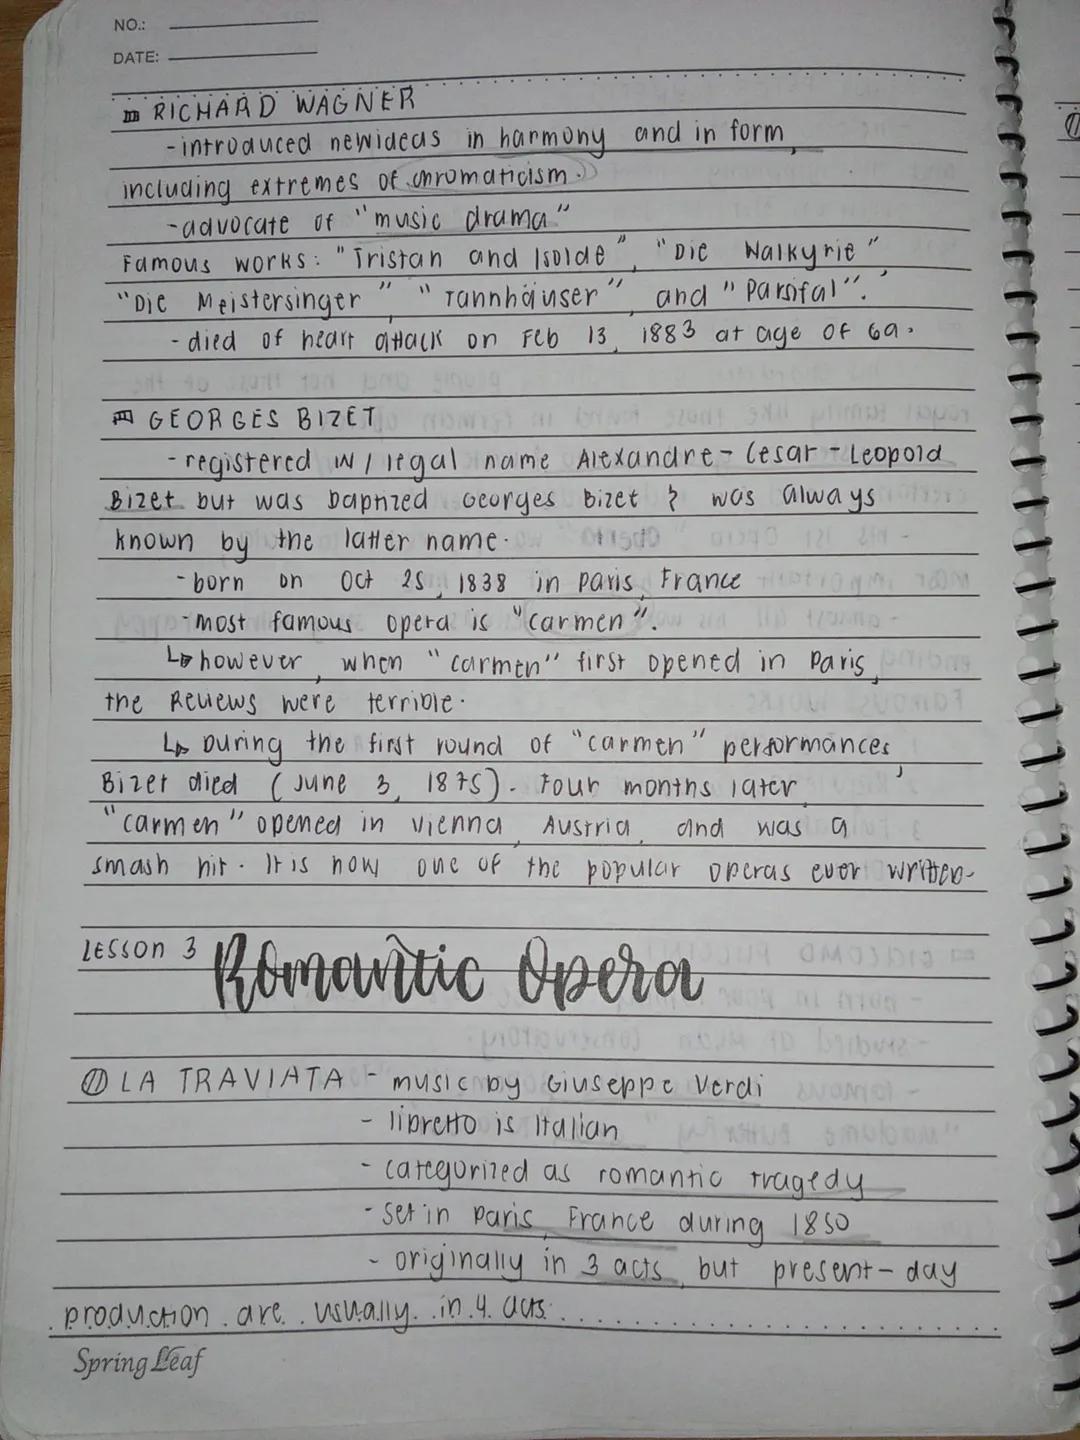 NO.:
DATE:
III RICHARD WAGNER
-introduced newideas in harmony and in form,
including extremes of chromaticism.
-advocate of "music drama"
Famous works: "Tristan and Isolde", "Die Walkyrie",
"Die Meistersinger", "Tannhäuser", and "Parsifal".
- died of heart attack on Feb 13, 1883 at age of 69.
GEORGES BIZET
-registered w/ legal name Alexandre-Cesar-Leopold
Bizet but was baptized Georges Bizet & was always
known by the latter name.
-born on Oct 25, 1838 in Paris, France
-most famous opera is "carmen".
↳ however, when "carmen" first opened in Paris,
the Reviews were terrible.
↳ During the first round of "carmen" performances,
Bizet died (June 3, 1875). Four months later,
"carmen" opened in Vienna, Austria, and was a
smash hit. It is now one of the popular operas ever written.
LESSON 3 Romantic Opera
LA TRAVIATA - music by Giuseppe Verdi
- libretto is Italian
- categorized as romantic tragedy
- set in Paris, France during 1850
- originally in 3 acts, but present-day
production are usually in 4 acts.
SpringLeaf